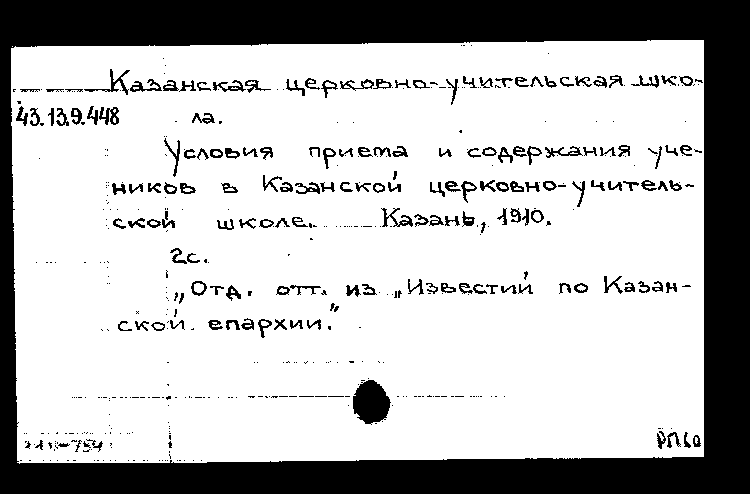 Казанская церковно-учительская шко-
43.13.9.448 ла.
Условия приема и содержания уче-
ников в Казанской церковно-учитель-
ской школе. Казань, 1910.
2с.
„Отд. отт. из „Известий по Казан-
ской епархии."